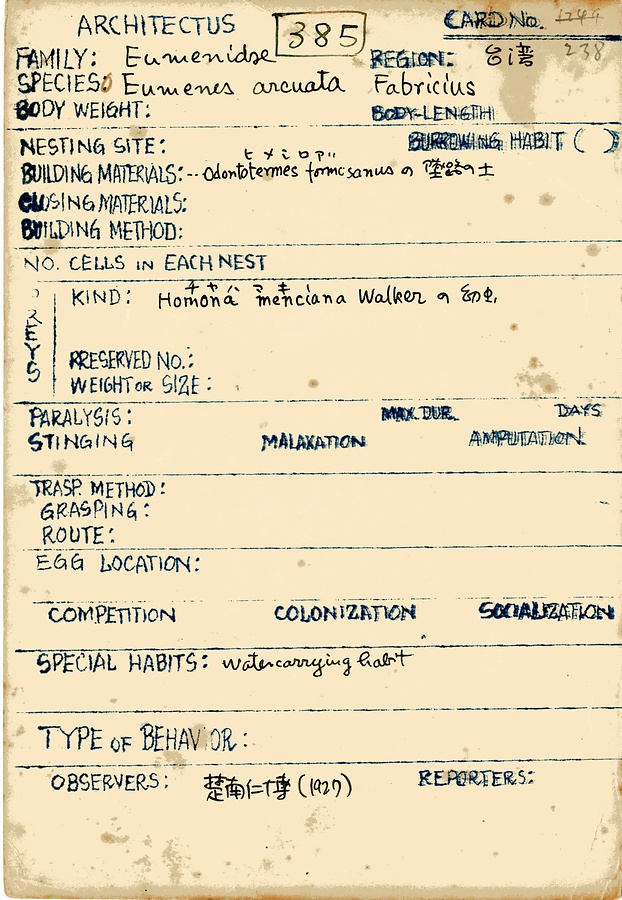 ARCHITECTUS 385 CARD No. 1244
FAMILY: Eumenidae REGION: 台湾 238
SPECIES: Eumenes arcuata Fabricius
BODY WEIGHT: BODY-LENGTH
NESTING SITE: BURROWING HABIT ( )
ヒメシロアリ
BUILDING MATERIALS: -- Odontotermes formosanus の 墜路の土
CLOSING MATERIALS:
BUILDING METHOD:
NO. CELLS IN EACH NEST
チャハマキ
KIND: Homona menciana Walker の幼虫,
PREYS
PRESERVED No.:
WEIGHT OR SIZE:
PARALYSIS: MAX. DUR. DAYS
STINGING MALAXATION AMPUTATION
TRASP. METHOD:
GRASPING:
ROUTE:
EGG LOCATION:
COMPETITION COLONIZATION SOCIALIZATION
SPECIAL HABITS: water carrying habit
TYPE OF BEHAVIOR:
OBSERVERS: 楚南仁博 (1927) REPORTERS: